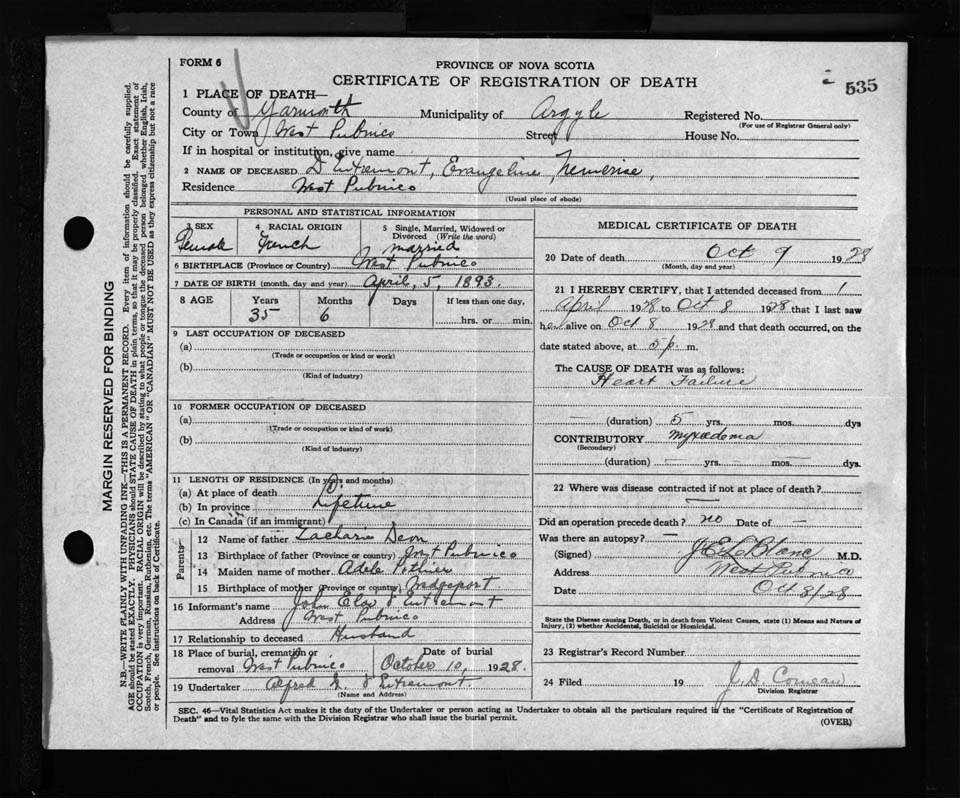 FORM 6
PROVINCE OF NOVA SCOTIA
CERTIFICATE OF REGISTRATION OF DEATH
2 535
1 PLACE OF DEATH—
County of Yarmouth Municipality of Argyle Registered No.
(For use of Registrar General only)
City or Town West Pubnico Street House No.
If in hospital or institution, give name
2 NAME OF DECEASED D'Entremont, Evangeline, Nemerise,
Residence West Pubnico
(Usual place of abode)
PERSONAL AND STATISTICAL INFORMATION
3 SEX 4 RACIAL ORIGIN 5 Single, Married, Widowed or Divorced (Write the word)
Female French married
6 BIRTHPLACE (Province or Country) West Pubnico
7 DATE OF BIRTH (month, day and year) April, 5, 1893.
8 AGE Years Months Days If less than one day,
35 6 hrs. or min.
9 LAST OCCUPATION OF DECEASED
(a)
(Trade or occupation or kind or work)
(b)
(Kind of industry)
10 FORMER OCCUPATION OF DECEASED
(a)
(Trade or occupation or kind of work)
(b)
(Kind of industry)
11 LENGTH OF RESIDENCE (In years and months)
(a) At place of death
(b) In province Lifetime
(c) In Canada (if an immigrant)
Parents
12 Name of father Zacharie Deon
13 Birthplace of father (Province or country) West Pubnico
14 Maiden name of mother Adele Pothier
15 Birthplace of mother (Province or country) Wedgeport
16 Informant's name John D'Entremont
Address West Pubnico
17 Relationship to deceased Husband
18 Place of burial, cremation or removal West Pubnico
Date of burial October 10, 1928.
19 Undertaker Alfred D'Entremont
(Name and Address)
MEDICAL CERTIFICATE OF DEATH
20 Date of death Oct 9 1928
(Month, day and year)
21 I HEREBY CERTIFY, that I attended deceased from 1
April 1928 to Oct 8 1928 that I last saw
her alive on Oct 8 1928 and that death occurred, on
date stated above, at 5 p. m.
The CAUSE OF DEATH was as follows:
Heart Failure
— (duration) 5 yrs. mos. dys
CONTRIBUTORY Myxœdema
(Secondary)
(duration) — yrs. — mos. — dys.
22 Where was disease contracted if not at place of death?
—
Did an operation precede death? no Date of —
Was there an autopsy? —
(Signed) J E LeBlanc M.D.
Address West Pubnico
Date Oct 8/28
State the Disease causing Death, or in death from Violent Causes, state (1) Means and Nature of
Injury, (2) whether Accidental, Suicidal or Homicidal.
23 Registrar's Record Number
24 Filed 19 J. D. Comeau
Division Registrar
SEC. 46—Vital Statistics Act makes it the duty of the Undertaker or person acting as Undertaker to obtain all the particulars required in the "Certificate of Registration of
Death" and to fyle the same with the Division Registrar who shall issue the burial permit.
(OVER)
MARGIN RESERVED FOR BINDING
N.B.—WRITE PLAINLY WITH UNFADING INK—THIS IS A PERMANENT RECORD. Every item of information should be carefully supplied.
AGE should be stated EXACTLY. PHYSICIANS should STATE CAUSE OF DEATH in plain terms, so that it may be properly classified. Exact statement of
OCCUPATION is very important. RACIAL ORIGIN will be described by stating to what people or tongue the deceased person belonged whether English, Irish,
Scotch, French, German, Russian, Ruthenian, etc. The terms "AMERICAN" OR "CANADIAN" MUST NOT BE USED as they express citizenship but not a race
or people. See instructions on back of Certificate.